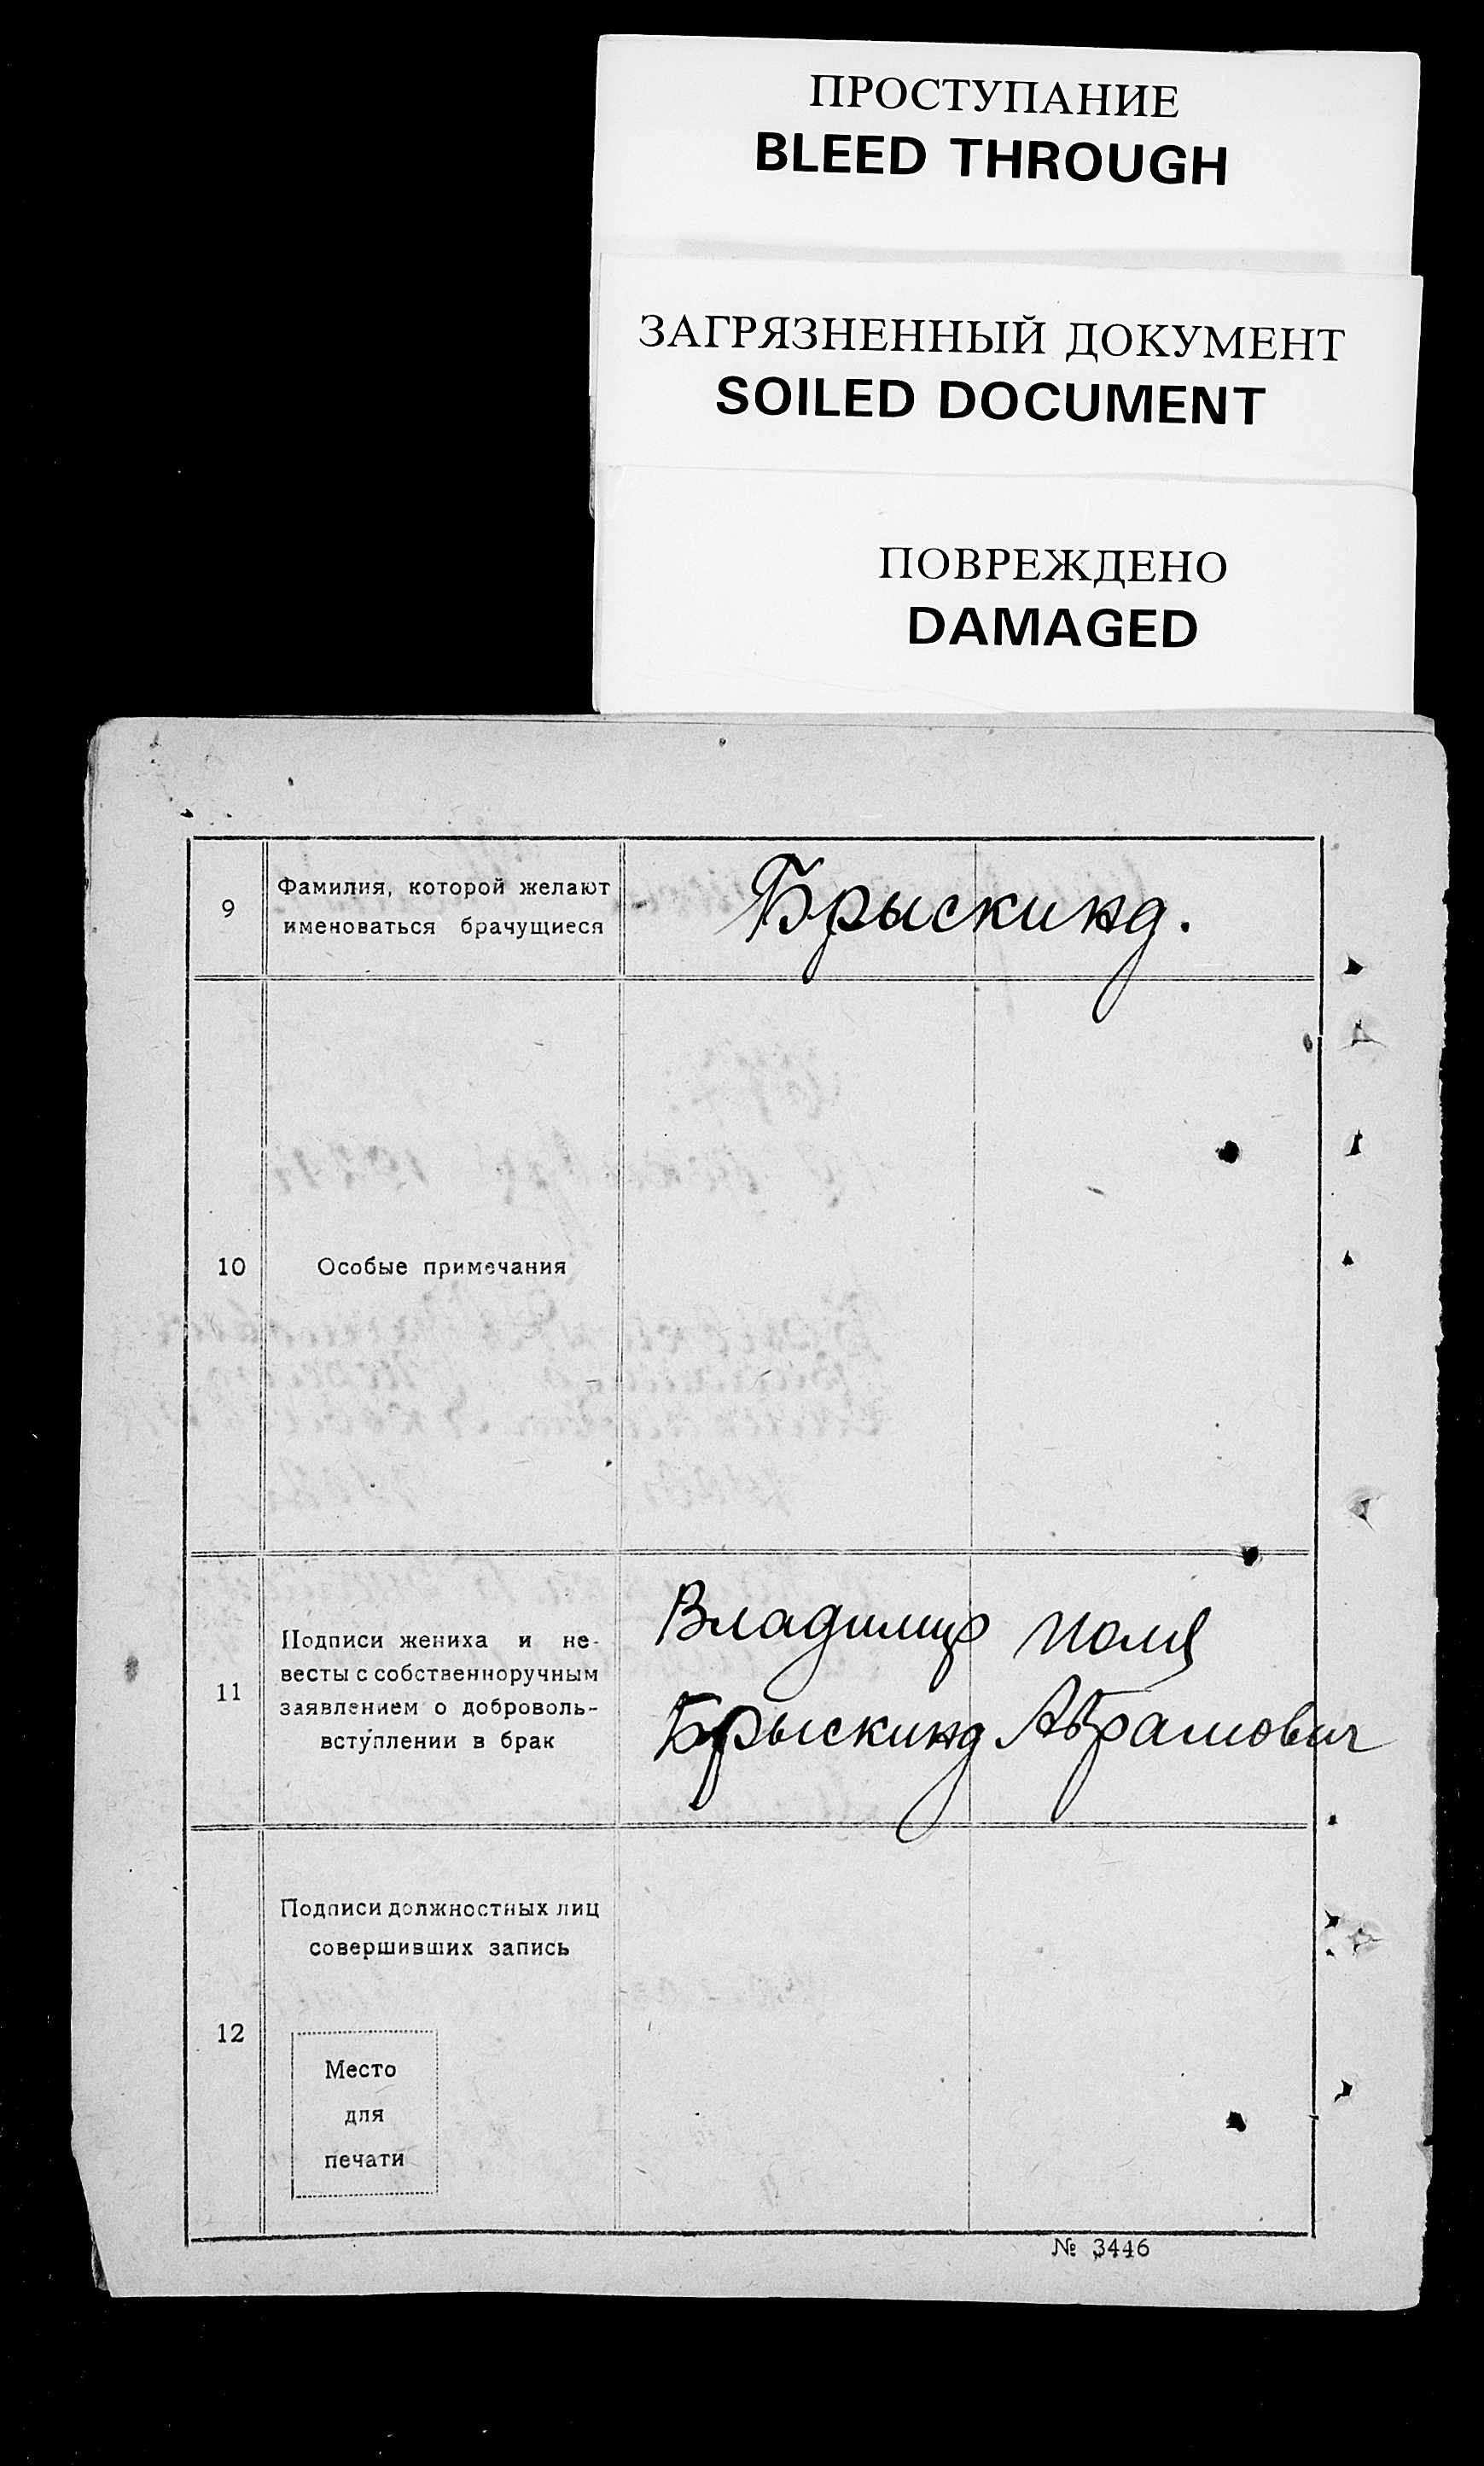 ПРОСТУПАНИЕ
BLEED THROUGH
ЗАГРЯЗНЕННЫЙ ДОКУМЕНТ
SOILED DOCUMENT
ПОВРЕЖДЕНО
DAMAGED
9
Фамилия, которой желают
именоваться брачущиеся
Брыскинд.
10
Особые примечания
11
Подписи жениха и не-
весты с собственноручным
заявлением о доброволь-
вступлении в брак
Владимир Поля
Брыскинд Абрамович
12
Подписи должностных лиц
совершивших запись
Место
для
печати
№ 3446